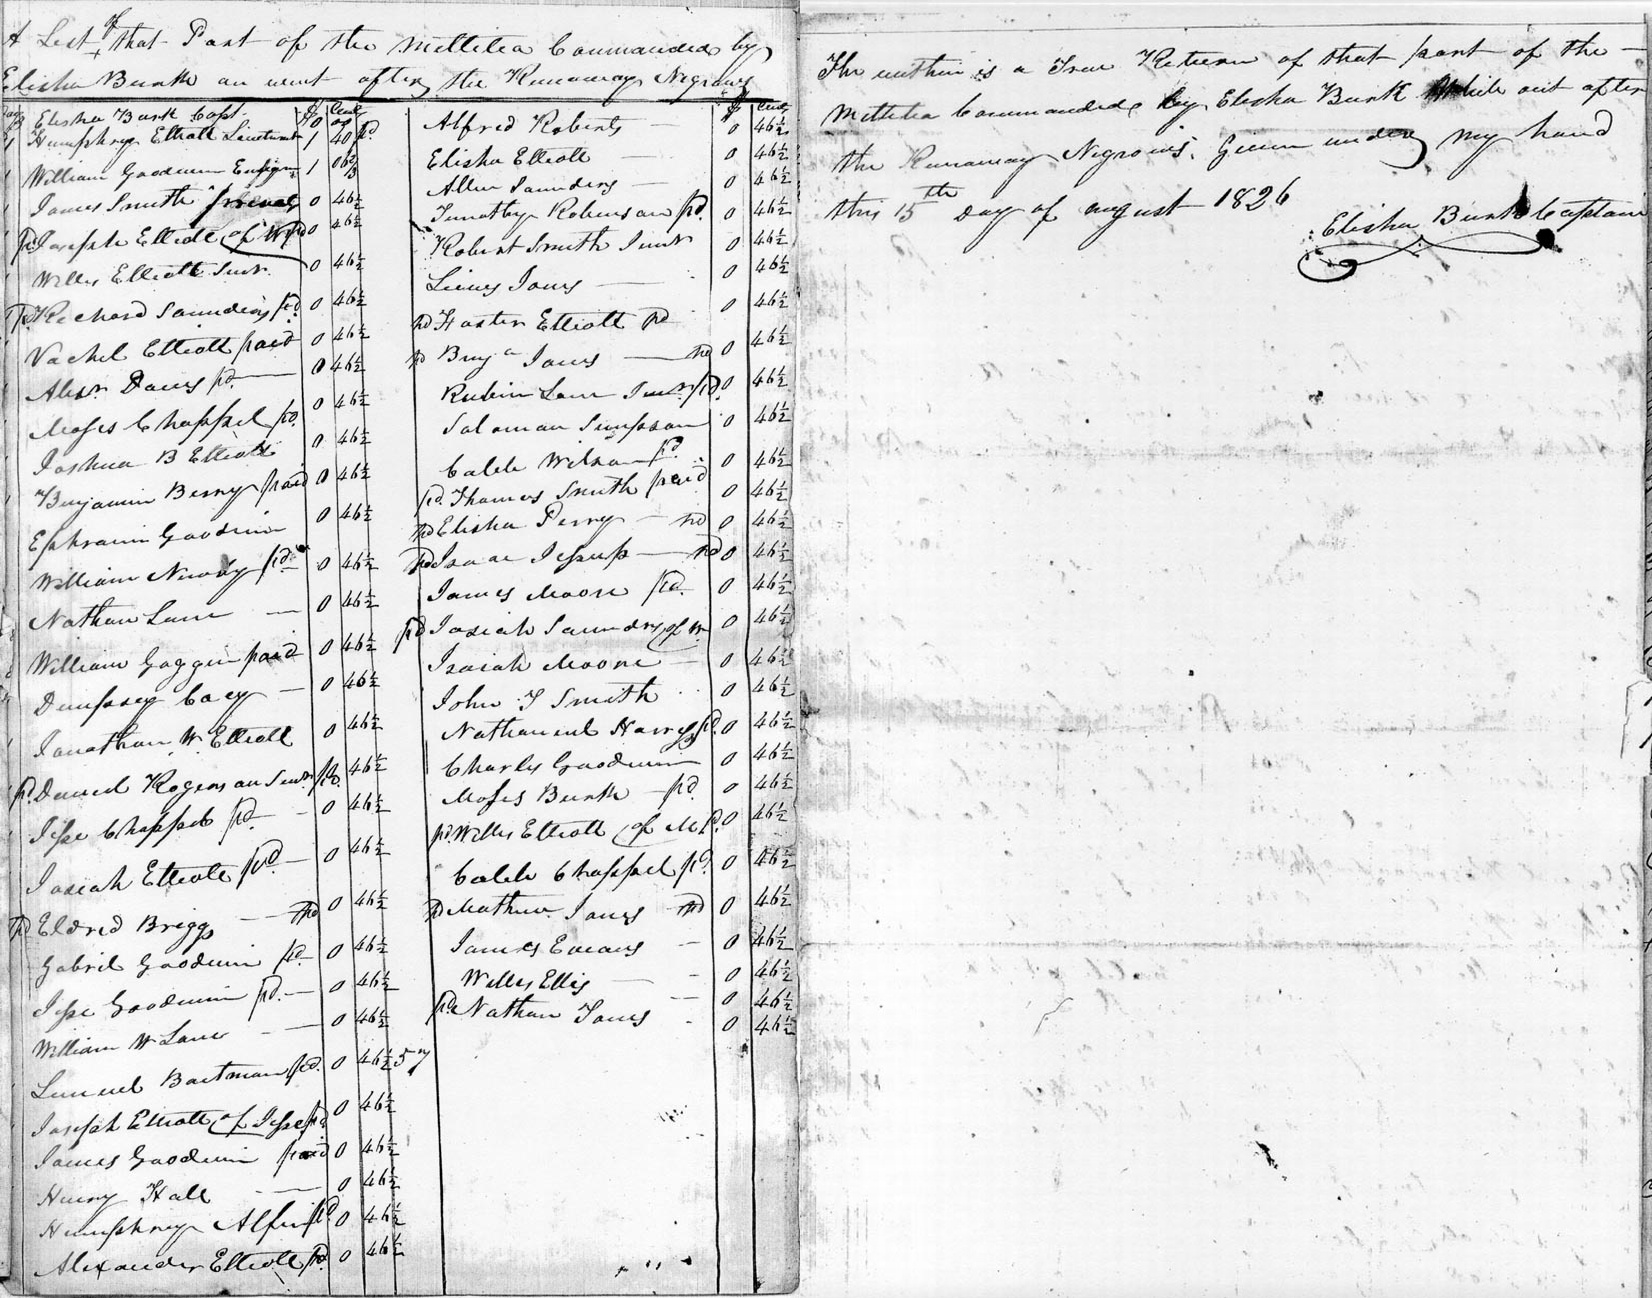 A List of that Part of the Millitia Commanded by
Elisha Bunk on went after the Runaway Negroes
$ Cents
Elisha Bunk Capt.
Humphrey Elliott Lieutenant 1 40 pd
William Goodwin Ensign 1
James Smith 0 46½
pd Joseph Elliott of 0 46½
Willis Elliott Senr. 0 46½
pd Richard Saunders pd. 0 46½
Vachel Elliott paid 0 46½
Alexr. Davis pd. 0 46½
Moses Chappel pd. 0 46½
Joshua B Elliott 0 46½
Benjamin Berry paid 0 46½
Ephraim Goodwin 0 46½
William Newby pd. 0 46½
Nathan Lane 0 46½
William Goggin paid 0 46½
Dempsey Coey 0 46½
Jonathan W Elliott 0 46½
pd. Daniel Rogerson Senr. pd. 46½
Jesse Chappel pd. 0 46½
Josiah Elliott pd. 0 46½
pd Eldred Briggs pd 0 46½
Gabril Goodwin pd. 0 46½
Jesse Goodwin pd. 0 46½
William W Lane 0 46½
Lemuel Boatman pd. 0 46½ 57
Joseph Elliott of Jesse pd 0 46½
James Goodwin paid 0 46½
Henry Hall 0 46½
Humphrey pd 0 46½
Alexander Elliott pd. 0 46½
$ Cents
Alfred Roberts 0 46½
Elisha Elliott 0 46½
Allen Saunders 0 46½
Timothy Robinson pd. 0 46½
Robert Smith Junr 0 46½
Jones 0 46½
pd Foster Elliott pd 0 46½
pd Benja Jones pd 0 46½
Rubin Lane Junr. pd. 0 46½
Soloman Simpson 0 46½
Caleb Wilson pd. 0 46½
pd. Thomas Smith paid 0 46½
pd Elisha Perry pd 0 46½
pd Isaac Jessup pd 0 46½
James Moore pd. 0 46½
pd Josiah Saunders of Wm 0 46½
Isaiah Moore 0 46½
John T Smith 0 46½
Nathaniel Harris pd. 0 46½
Charles Goodwin 0 46½
Moses Bunk pd. 0 46½
pd. Willis Elliott of M. pd. 0 46½
Caleb Chappel pd. 0 46½
pd Mathew Jones pd 0 46½
James Evans 0 46½
Willis Ellis 0 46½
pd. Nathan Jones 0 46½
0 46½
The within is a True Return of that part of the
Millitia Commanded by Elisha Bunk While out after
the Runaway Negroes. Given under my hand
this 15th day of august 1826
Elisha Bunk Captain